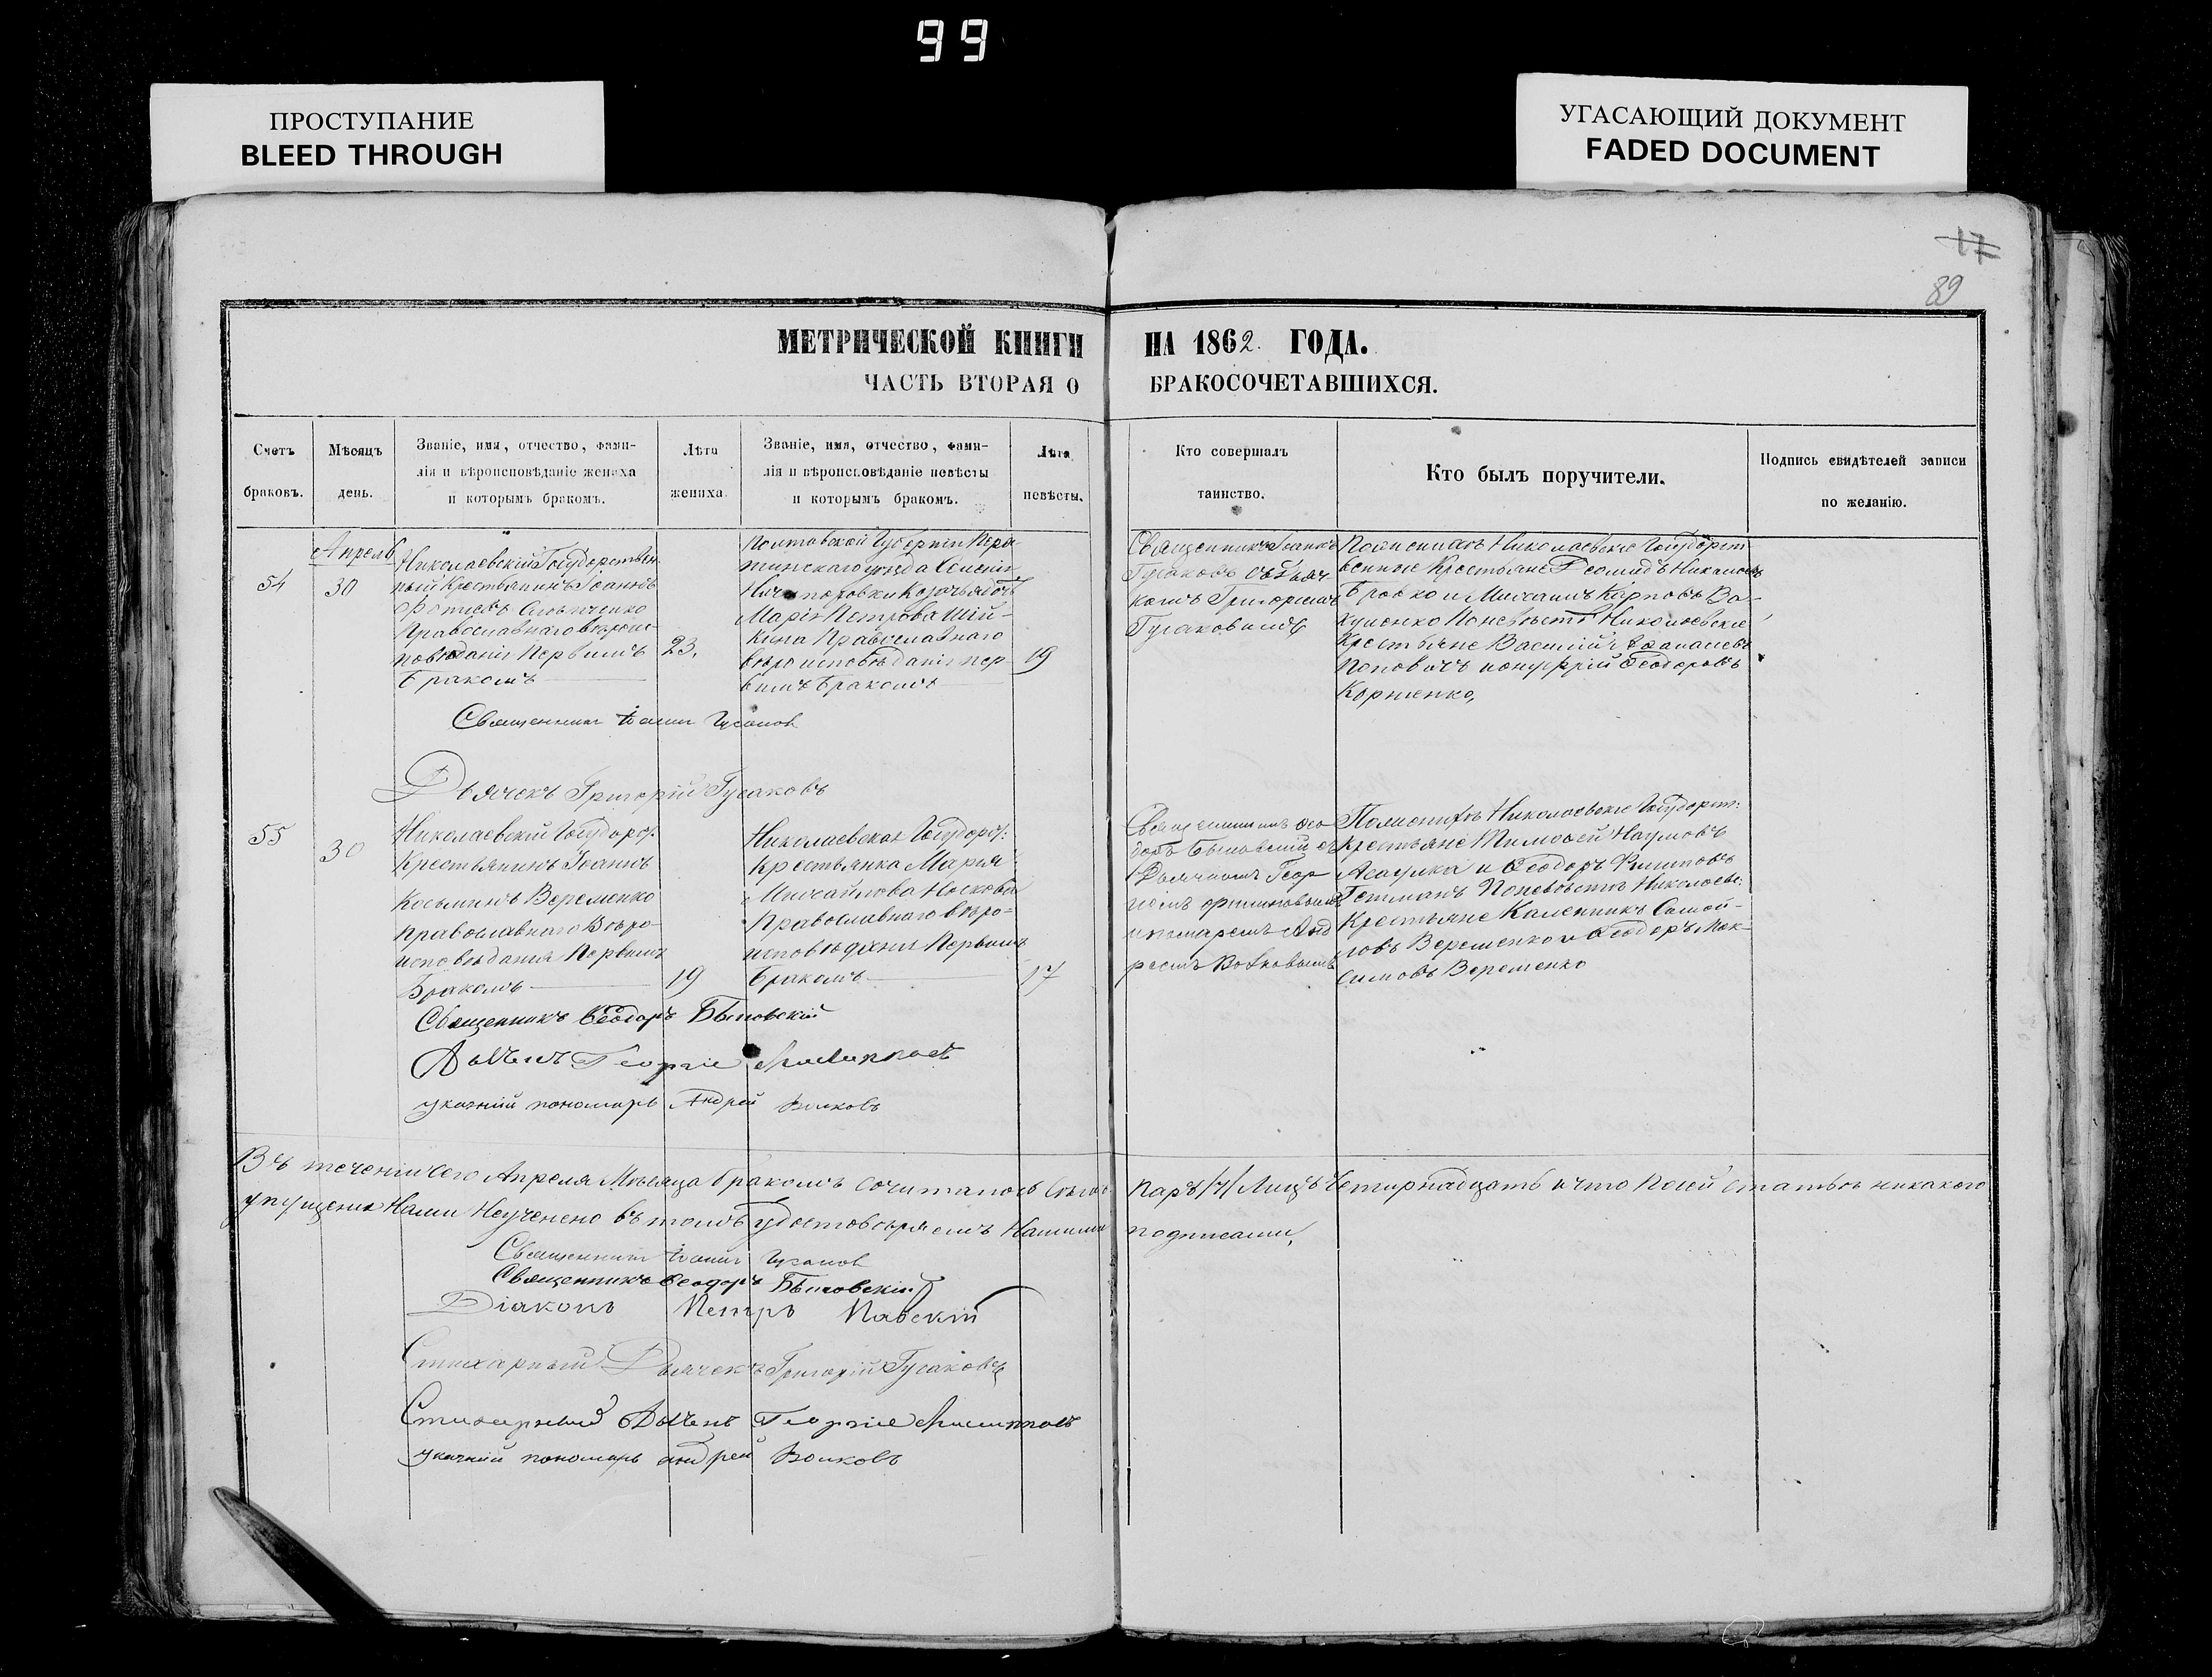 99
ПРОСТУПАНИЕ
BLEED THROUGH
УГАСАЮЩИЙ ДОКУМЕНТ
FADED DOCUMENT
17
89
МЕТРИЧЕСКОЙ КНИГИ НА 1862. ГОДА.
ЧАСТЬ ВТОРАЯ О БРАКОСОЧЕТАВШИХСЯ.
Счетъ
браковъ.
Мѣсяцъ
день.
Званіе, имя, отчество, фами-
лія и вѣроисповѣданіе жениха
и которымъ бракомъ.
Лѣта
жениха.
Званіе, имя, отчество, фами-
лія и вѣроисповѣданіе невѣсты
и которымъ бракомъ.
Лѣта
невѣсты.
Кто совершалъ
таинство.
Кто былъ поручители.
Подпись свидѣтелей записи
по желанію.
54
Апрель
30
Николаевскій Государствен
ный Крестьянинъ Іоаннъ
Фотіевъ
Православнаго вѣроис-
повѣданія Первымъ
Бракомъ
23.
Полтавской Губерніи Пиря
тинскаго уѣзда Селенія
Ничипоровки Козачья дочь
Марія Петрова Шій-
кина Православнаго
вѣроисповѣданія пер
вымъ Бракомъ
19
Священникъ Іоаннъ
Гусаковъ съ Дьяч
комъ Григоріемъ
Гусаковымъ
По женихѣ Николаевскіе Государст
венные Крестьяне Леонидъ
Бровко и Михаилъ Карповъ Ва-
куленко По невѣстѣ Николаевскіе
Крестьяне Василій Аѳанасьевъ
Поповичъ и Онуфрій Ѳеодоровъ
Корніенко,
Священник Іоанн Гусаков
Дьячекъ Григорій Гусаковъ
55
30
Николаевскій Государс:
Крестьянинъ Іоаннъ
Косьминъ Веременко
Православнаго Вѣро-
исповѣданія Первымъ
Бракомъ
19
Николаевская Государс:
Крестьянка Марія
Михайлова Носкова
Православнаго вѣро-
исповѣданія Первымъ
Бракомъ
17
Священникъ Ѳео
доръ съ
Дьячкомъ Геор
гіемъ
и пономаремъ Анд
реемъ Волковымъ
По женихѣ Николаевскіе Государст:
крестьяне Тимоѳей Наумовъ
и Ѳеодоръ Филиповъ
Гетманъ По невѣстѣ Николаевс:
Крестьяне Каленникъ Самой-
ловъ Веременко и Ѳеодоръ Мак-
симовъ Веременко
Священникъ Ѳеодоръ
Дьячекъ Георгіе
указный пономарь Андрей Волковъ
Въ теченіи сего Апреля Мѣсяца бракомъ сочиталось паръ /7/ Лицъ Четырнадцать и что по сей статьѣ никакого
упущенія Нами Неучинено въ томъ удостовѣряемъ Нашими подписами,
Священник Іоанн Гусаков
Священникъ Ѳеодоръ
Діаконъ Петръ Павскій
Стихарный Дьячекъ Григорій Гусаковъ
Стихарный Дьячекъ Георгіе
указный пономарь Андрей Волковъ